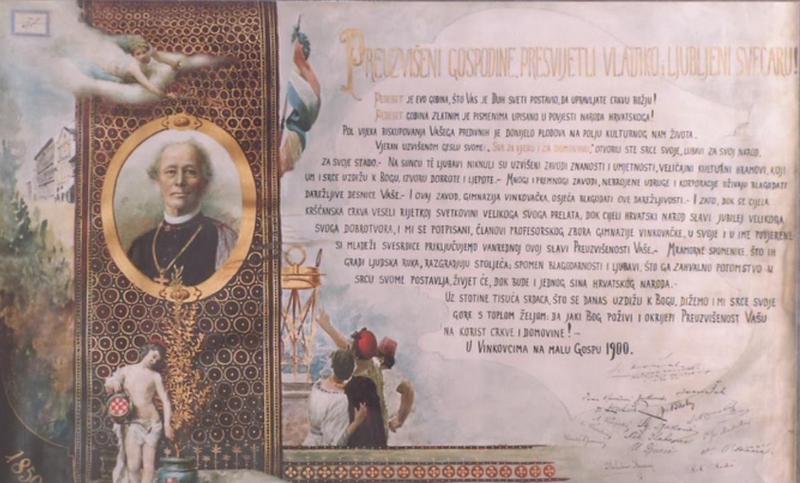 PREUZVIŠENI GOSPODINE, PRESVIJETLI VLADIKO I LJUBLJENI SVEČARU!
PEDESET JE EVO GODINA, ŠTO VAS JE DUH SVETI POSTAVIO, DA UPRAVLJATE CRKVU BOŽJU!
PEDESET GODINA ZLATNIM JE PISMENIMA UPISANO U POVJESTI NARODA HRVATSKOGA!
POL VIJEKA BISKUPOVANJA VAŠEGA PREDIVNIH JE DONIJELO PLODOVA NA POLJU KULTURNOG NAM ŽIVOTA.
VJERAN UZVIŠENOM GESLU SVOME: „SVE ZA VJERU I ZA DOMOVINU", OTVORILI STE SRCE SVOJE, LJUBAVI ZA SVOJ NAROD,
ZA SVOJE STADO.- NA SUNCU TE LJUBAVI NIKNULI SU UZVIŠENI ZAVODI ZNANOSTI I UMJETNOSTI, VELIČAJNI KULTURNI HRAMOVI, KOJI
UM I SRCE UZDIŽU K BOGU, IZVORU DOBROTE I LJEPOTE.- MNOGI I PREMNOGI ZAVODI, NEBROJENE UDRUGE I KORPORACIJE UŽIVAJU BLAGODATI
DAREŽLJIVE DESNICE VAŠE.- I OVAJ ZAVOD, GIMNAZIJA VINKOVAČKA, OSJEĆA BLAGODATI OVE DAREŽLJIVOSTI.- I ZATO, DOK SE CIJELA
KRŠĆANSKA CRKVA VESELI RIJETKOJ SVETKOVINI VELIKOGA SVOGA PRELATA, DOK CIJELI HRVATSKI NAROD SLAVI JUBILEJ VELIKOGA
SVOGA DOBROTVORA, I MI SE POTPISANI, ČLANOVI PROFESORSKOG ZBORA GIMNAZIJE VINKOVAČKE, U SVOJE I U IME POVJERENE
SI MLADEŽI SVESRDICE PRIKLJUČUJEMO VANREDNOJ OVOJ SLAVI PREUZVIŠENOSTI VAŠE.- MRAMORNE SPOMENIKE, ŠTO IH
GRADI LJUDSKA RUKA, RAZGRADJUJU STOLJEĆA; SPOMEN BLAGODARNOSTI I LJUBAVI, ŠTO GA ZAHVALNO POTOMSTVO U
SRCU SVOME POSTAVLJA, ŽIVJET ĆE, DOK BUDE I JEDNOG SINA HRVATSKOG NARODA.-
UZ STOTINE TISUĆA SRDACA, ŠTO SE DANAS UZDIŽU K BOGU, DIŽEMO I MI SRCE SVOJE
GORE S TOPLOM ŽELJOM: DA JAKI BOG POŽIVI I OKRIJEPI PREUZVIŠENOST VAŠU
NA KORIST CRKVE I DOMOVINE!-
U VINKOVCIMA NA MALU GOSPU 1900.
1850